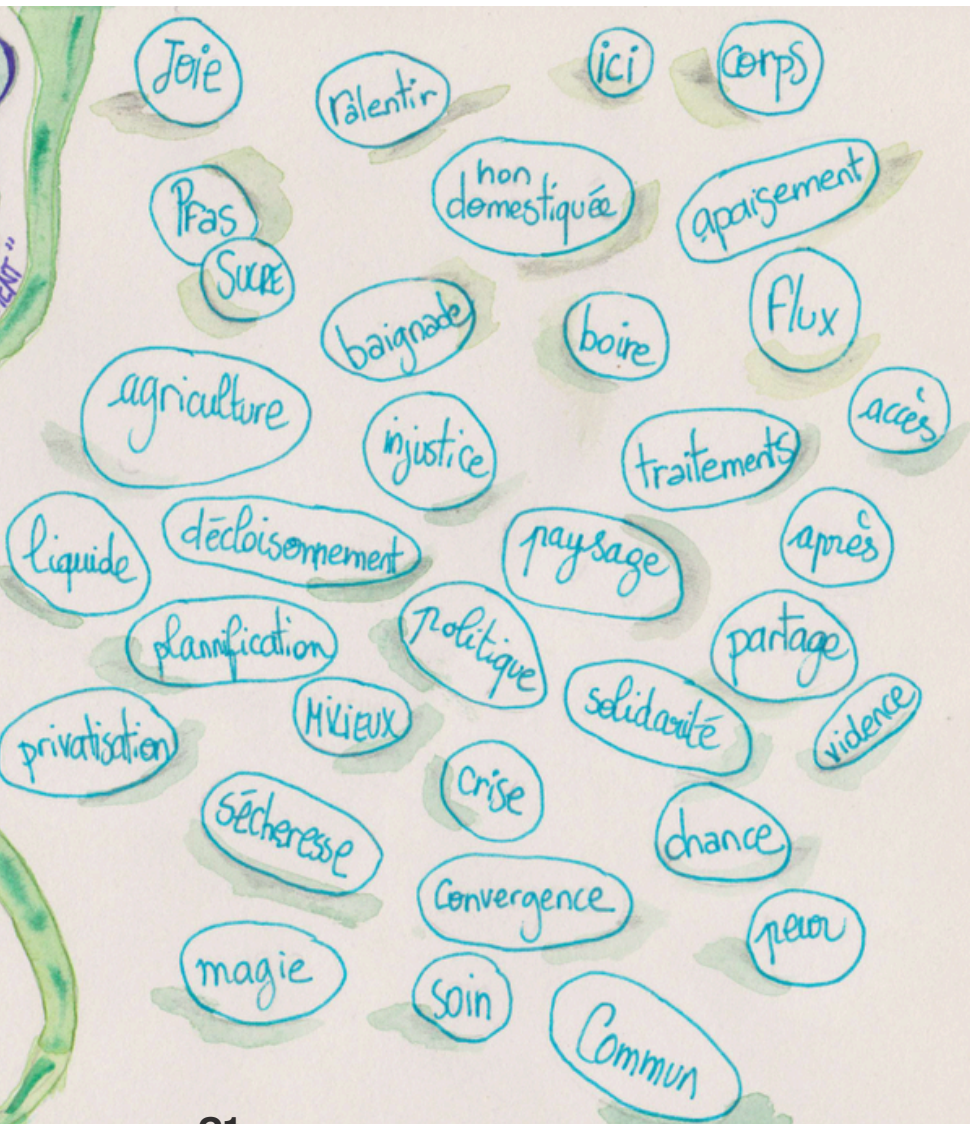 Joie
ralentir
ici
corps
Pfas
non
domestiquée
apaisement
SUCRE
baignade
boire
flux
agriculture
injustice
traitements
accès
liquide
décloisonnement
paysage
après
plannification
politique
partage
privatisation
MILIEUX
solidarité
vidence
sécheresse
crise
chance
Convergence
peur
magie
soin
Commun